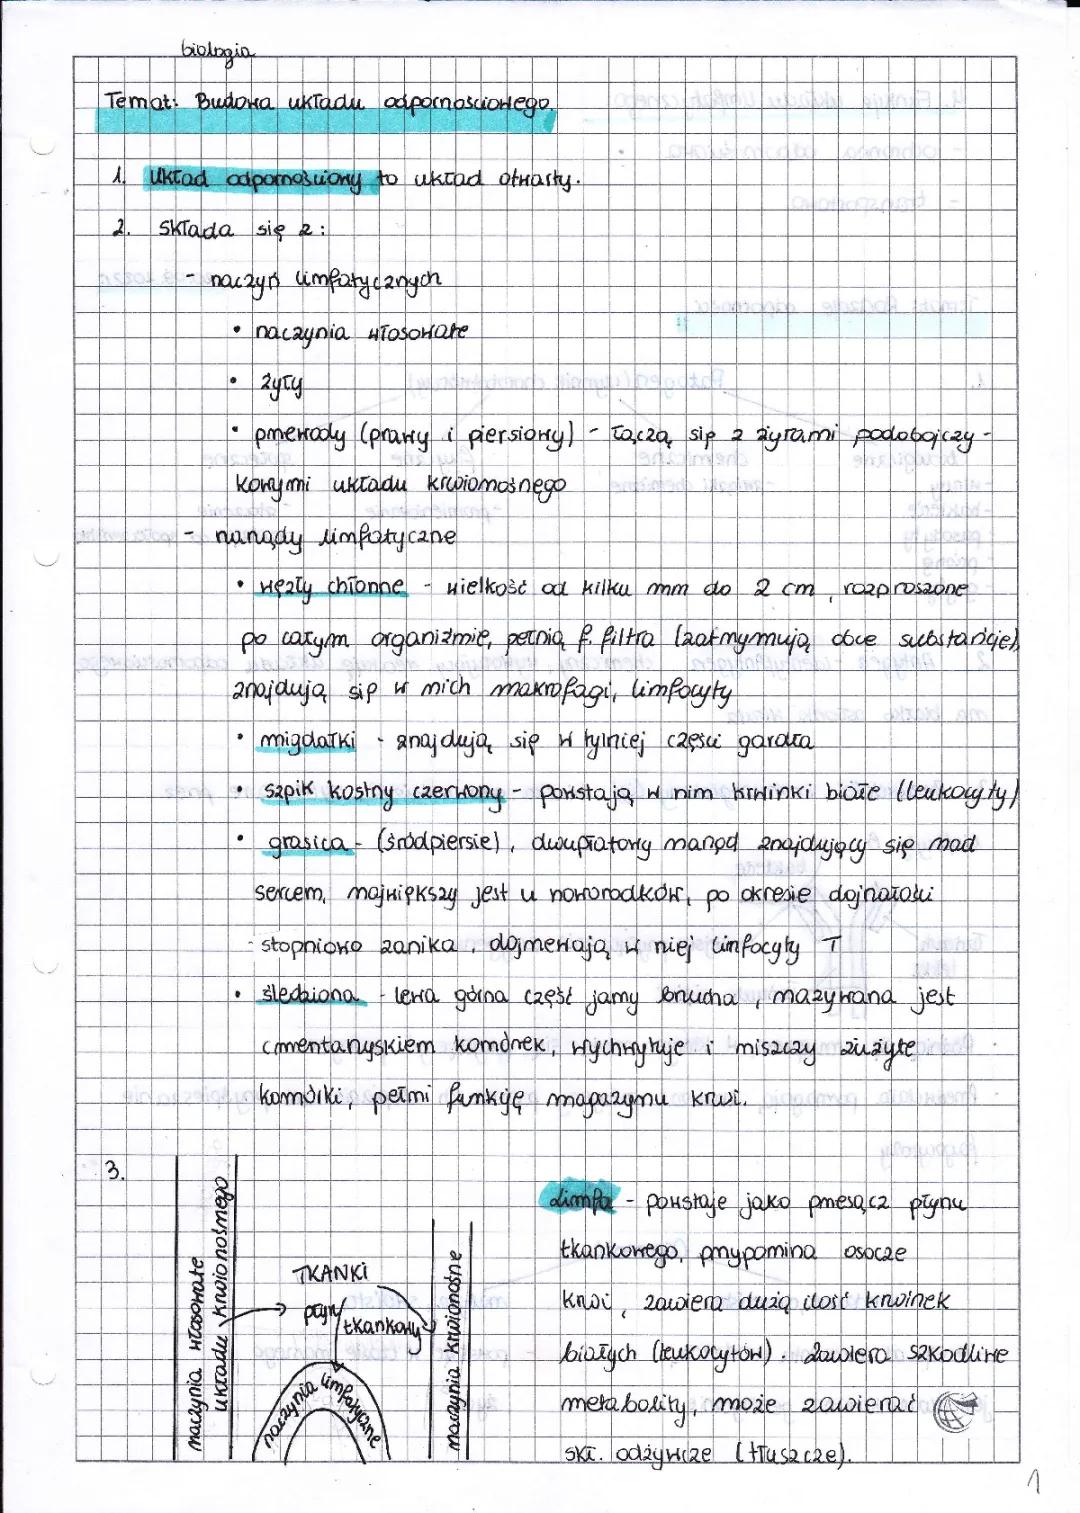 biologia
Temat: Budowa układu odpornościowego.
1. Układ odpornościowy to układ otwarty.
2. Składa się z:
- naczyń limfatycznych
• naczynia włosowate
• żyły
• przewody (prawy i piersiowy) - łączą się z żyłami podobojczy-
kowymi układu krwionośnego
- narządy limfatyczne
• węzły chłonne - wielkość od kilku mm do 2 cm, rozproszone
po całym organiźmie, pełnią f. filtra (zatrzymują obce substancje),
znajdują się w nich makrofagi, limfocyty
• migdałki - znajdują się w tylniej części gardła
• szpik kostny czerwony - powstają w nim krwinki białe (leukocyty)
• grasica - (śródpiersie), dwupłatowy narząd znajdujący się nad
sercem, największy jest u noworodków, po okresie dojrzałości
stopniowo zanika, dojrzewają w niej limfocyty T
• śledziona - lewa górna część jamy brzucha, nazywana jest
cmentarzyskiem komórek, wychwytuje i niszczy zużyte
komórki, pełni funkcję magazynu krwi.
3.
naczynia włosowate
układu krwionośnego
TKANKI
płyn
tkankowy
naczynia limfatyczne
naczynia krwionośne
Limfa - powstaje jako przesącz płynu
tkankowego, przypomina osocze
krwi, zawiera dużą ilość krwinek
białych (leukocytów). Zawiera szkodliwe
metabolity, może zawierać
skł. odżywcze (tłuszcze).
1